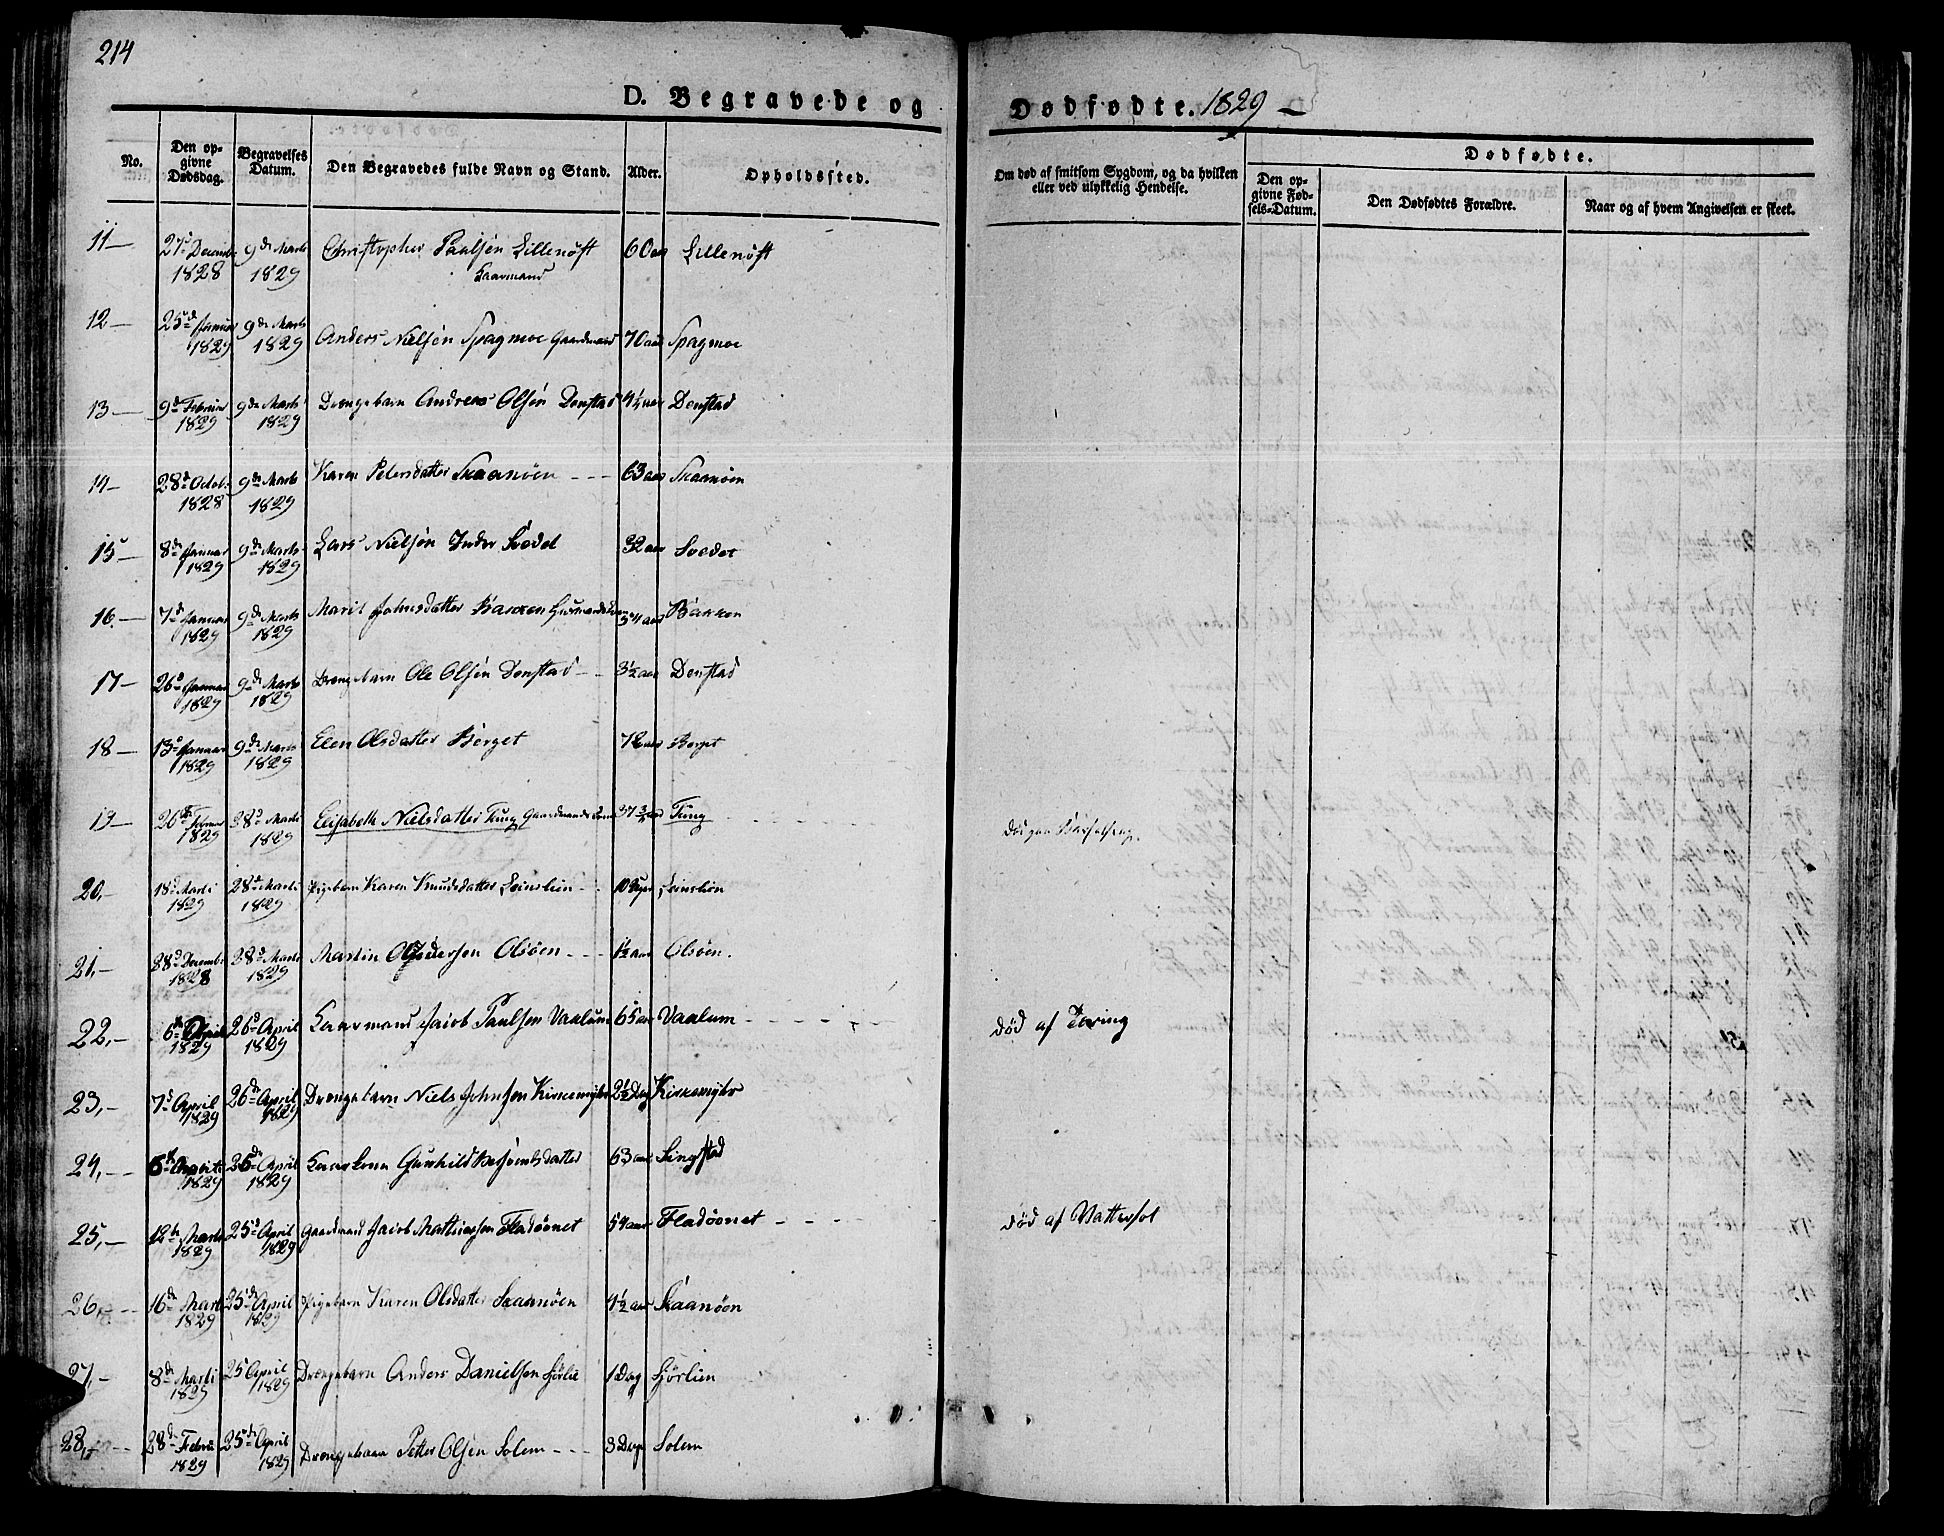 214
D. Begravede og Dødfødte. 1829 –
No.
Den opgivne Dødsdag.
Begravelses Datum.
Den Begravedes fulde Navn og Stand.
Alder.
Opholdssted.
Om død af smitsom Sygdom, og da hvilken eller ved ulykkelig Hendelse.
Dødfødte.
Den opgivne Fødsels-Datum.
Den Dødfødtes Forældre.
Naar og af hvem Angivelsen er skeet.
11 – 27de Decembr 1828 9de Marts 1829 Christopher Paulsøn Lillenøst 60 aar Lillenøst
Kaarmand
12 – 25de Januar 1829 9de Marts 1829 Anders Nielsøn Spagmoe Gaardmand 70 aar Spagmoe
13 – 9de Februar 1829 9de Marts 1829 Drengebarn Andreas Olsøn Denstad 4½ aar Denstad
14 – 28de Octob. 1828 9de Marts 1829 Karen Petersdatter Skaanøen 63 aar Skaanøen
15 – 8de Januar 1829 9de Marts 1829 Lars Nielsøn Inder Svedet 32 aar Svedet
16. – 7de Januar 1829 9de Marts 1829 Marit Johnsdatter Bakken 54 aar Bakken
17 – 26de Januar 1829 9de Marts 1829 Drengebarn Ole Olsøn Denstad 3½ aar Denstad
18 – 13de Januar 1829 9de Marts 1829 Elen Olsdatter Berget 72 aar Berget
19 – 26de Februar 1829 28de Marts 1829 Elisabeth Nielsdatter Tung Gaardmandskone 37 aar Tung død paa Barselseng.
20, – 18de Marti 1829 28de Marti 1829 Pigebarn Karen Knudsdatter Leinslien 10 Uger Leinslien
21, – 28de Decembr 1828 28de Marti 1829 Martin Olsøen 1½ aar Olsøen.
22, – 6te April 1829 26de April 1829 Kaarmand Jacob Paulsen Vaalum 65 aar Vaalum død af Tæring
23, – 7de April 1829 26de April 1829 Drengebarn Niels Johnsen Kirkemyhr 2½ Dag Kirkemyhr
24, – 1829 26de April 1829 Kaarkone Gunhild 63 aar Singstad
25, – 12te Marti 1829 25de April 1829 Gaardmand Jacob Mathiassen Fladøunet 54 aar Fladøunet død af Vattersot
26, – 16de Marti 1829 25de April 1829 Pigebarn Karen Olsdatter Skaanøen 4½ aar Skaanøen
27, – 8de Marti 1829 25 April 1829 Drengebarn Anders Danielsen Hørlie 1 Dag Hørlien
28, – 28de Febru. 1829 25de April 1829 Drengebarn Petter Olsen Solem 3 Dage Solem